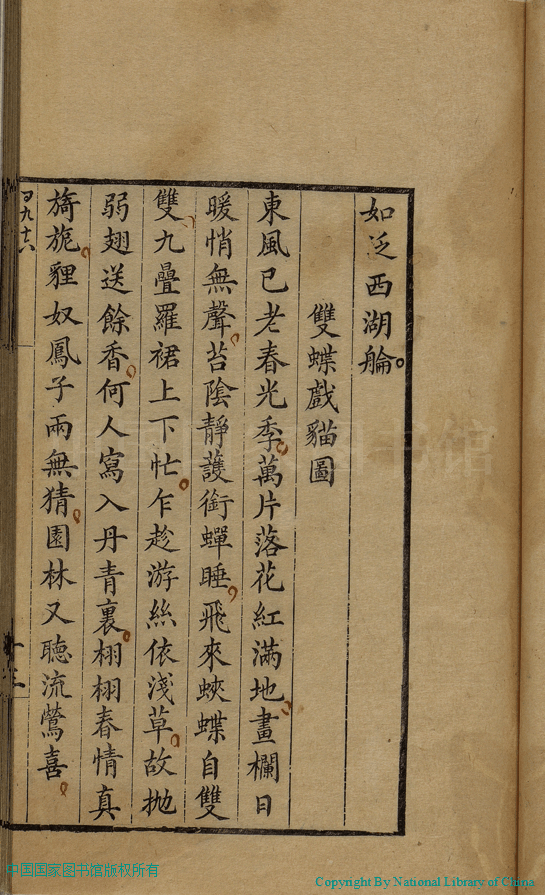 如泛西湖艑
雙蝶戲貓圖
東風已老春光季萬片落花紅滿地畫欄日
暖悄無聲苔陰靜護銜蟬睡飛來蛺蝶自雙
雙九疊羅裙上下忙乍趁游絲依淺草故拋
弱翅送餘香何人寫入丹青裏栩栩春情真
旖旎貍奴鳳子兩無猜園林又聽流鶯喜
十三
中国国家图书馆版权所有
Copyright By National Library of China